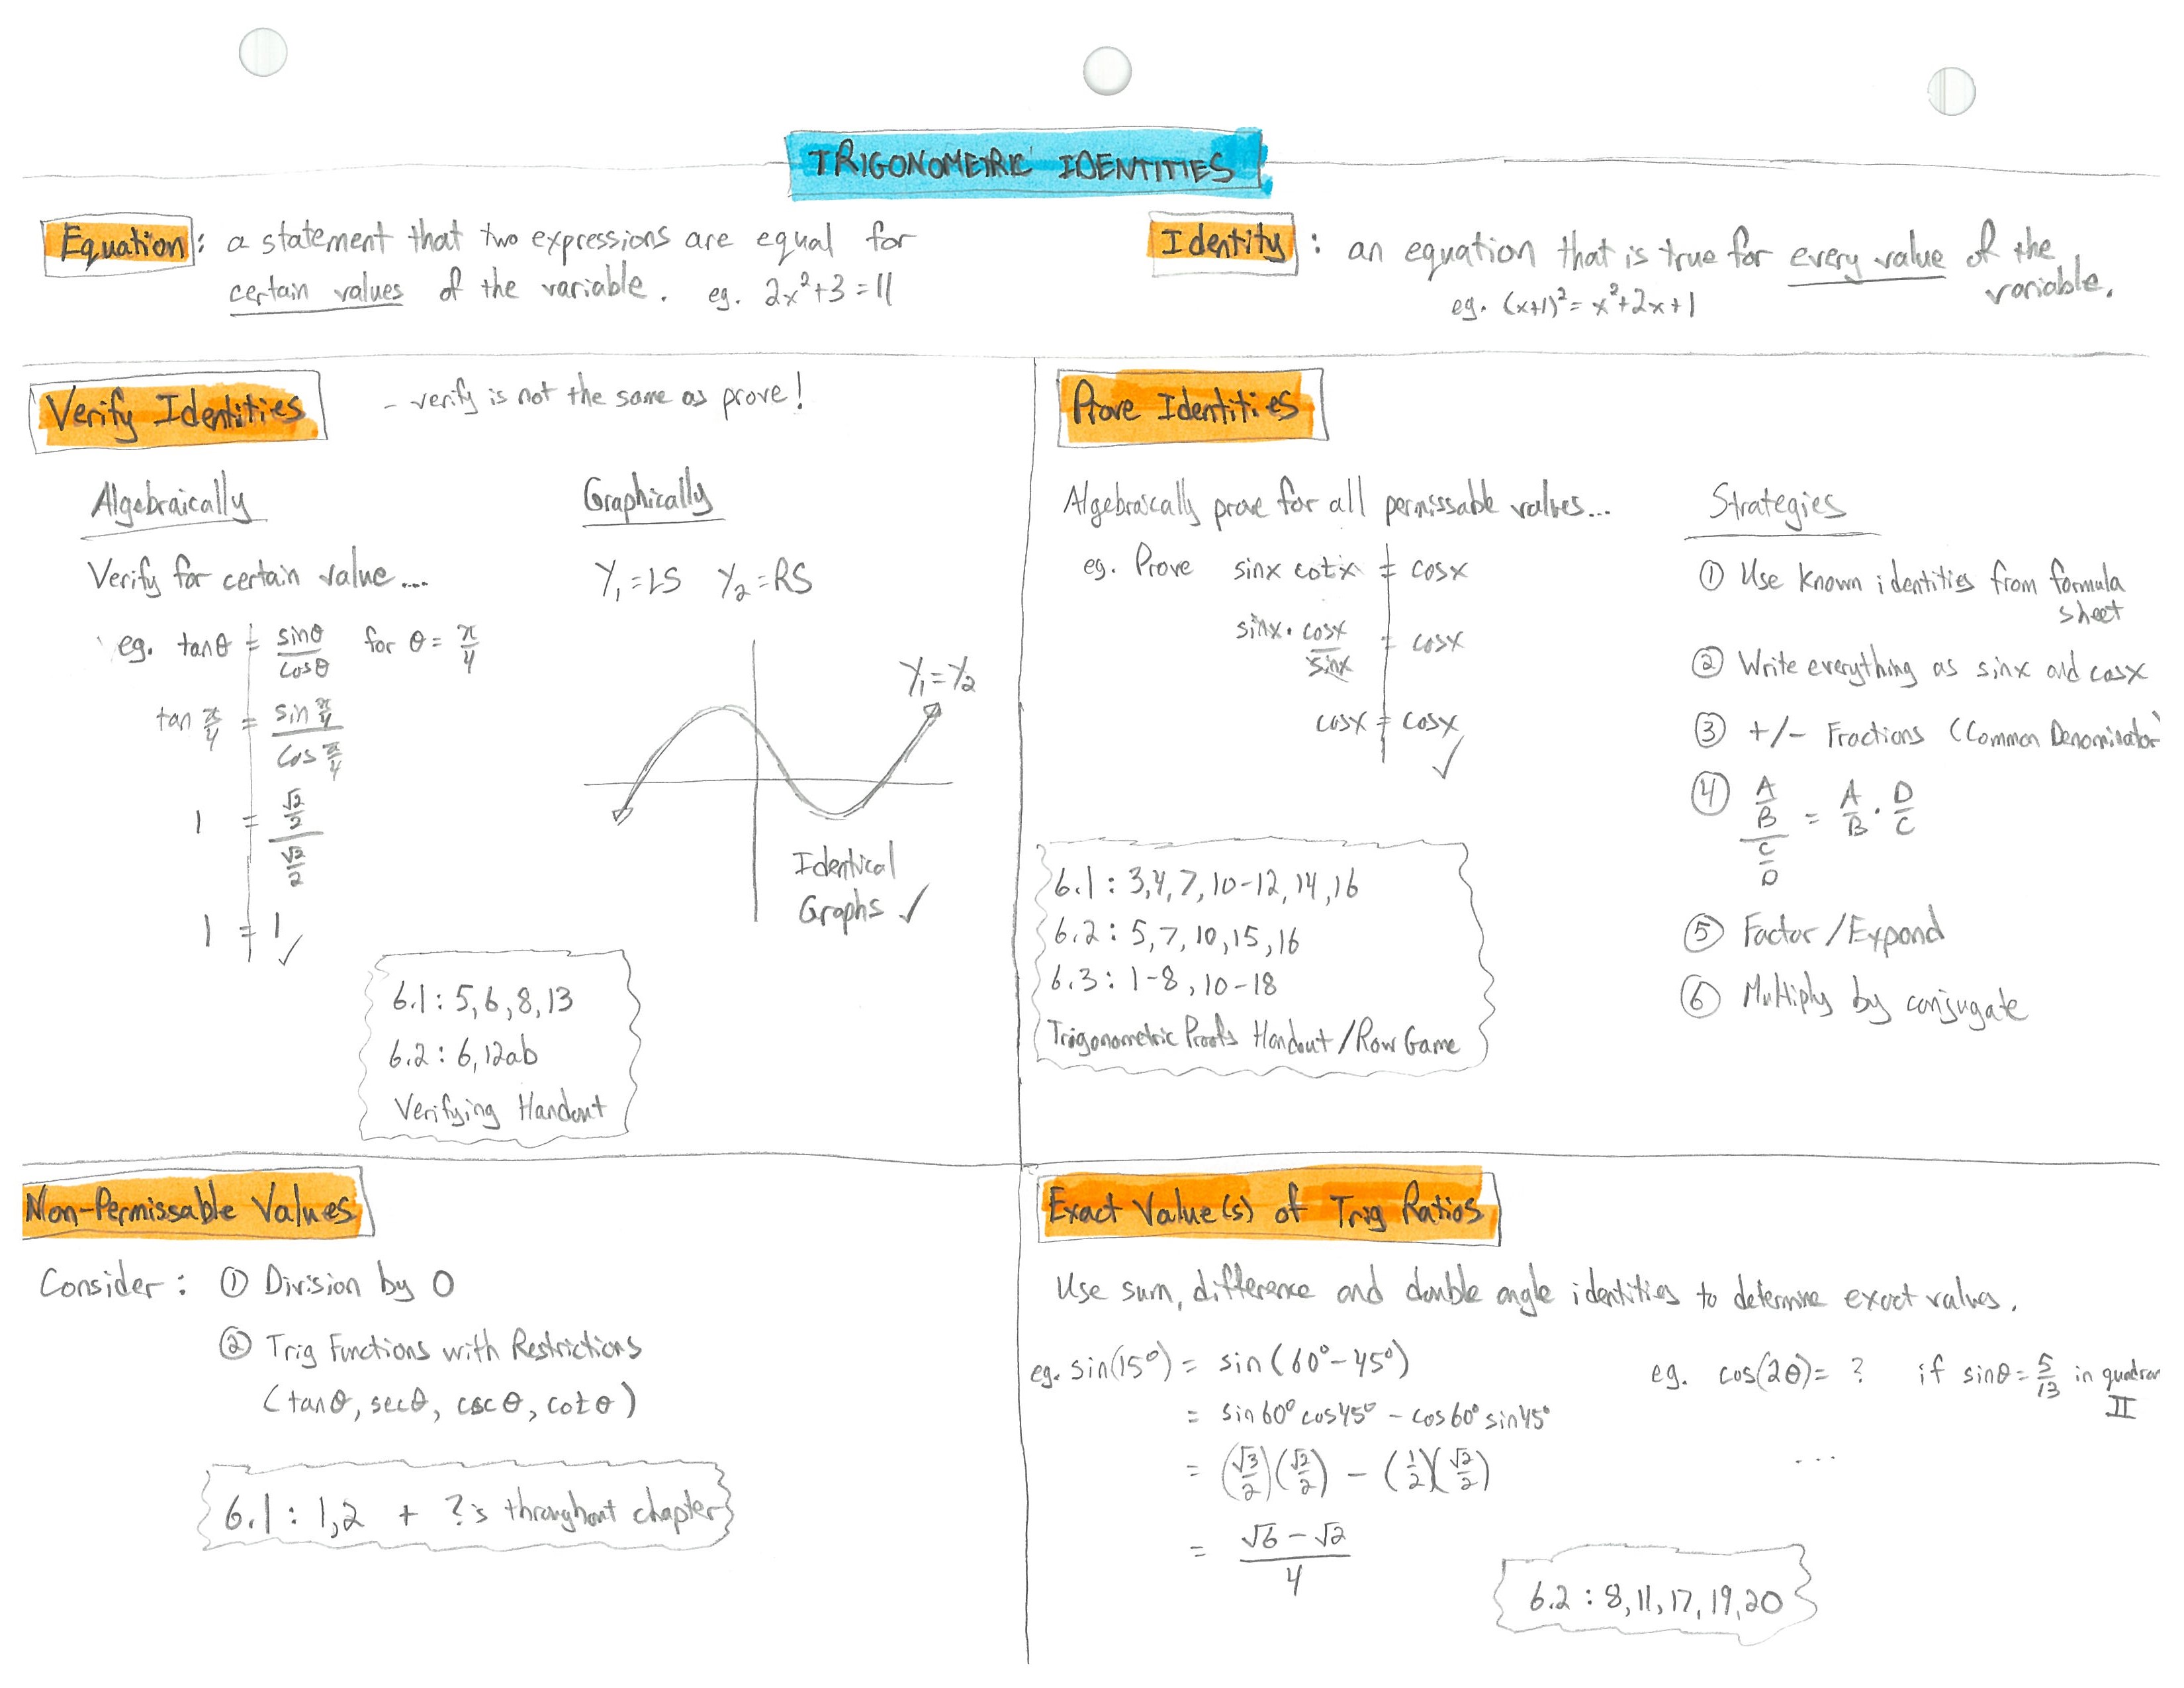 TRIGONOMETRIC IDENTITIES
Equation : a statement that two expressions are equal for
certain values of the variable. eg. 2x²+3=11
Identity : an equation that is true for every value of the
variable.
eg. (x+1)²= x²+2x+1
Verify Identities
- verify is not the same as prove!
Algebraically
Verify for certain value....
eg. tanθ = sinθ/cosθ for θ= π/4
tan π/4 = sin π/4 / cos π/4
1 = √2/2 / √2/2
1 = 1 ✓
Graphically
Y₁=LS Y₂=RS
Y₁=Y₂
Identical
Graphs ✓
6.1: 5,6,8,13
6.2: 6,12ab
Verifying Handout
Prove Identities
Algebraically prove for all permissable values...
eg. Prove sinx cotx = cosx
sinx · cosx/sinx = cosx
cosx = cosx
✓
6.1 : 3,4,7,10-12,14,16
6.2 : 5,7,10,15,16
6.3 : 1-8,10-18
Trigonometric Proofs Handout/Row Game
Strategies
① Use known identities from formula
sheet
② Write everything as sinx and cosx
③ +/- Fractions (Common Denominator)
④ A/B / C/D = A/B · D/C
⑤ Factor/Expand
⑥ Multiply by conjugate
Non-Permissable Values
Consider : ① Division by 0
② Trig Functions with Restrictions
(tanθ, secθ, cscθ, cotθ)
6.1 : 1,2 + ?'s throughout chapter
Exact Value(s) of Trig Ratios
Use sum, difference and double angle identities to determine exact values.
eg. sin(15°) = sin(60°-45°)
= sin60°cos45° - cos60°sin45°
= (√3/2)(√2/2) - (1/2)(√2/2)
= √6-√2 / 4
eg. cos(2θ)= ? if sinθ= 5/13 in quadran
II
...
6.2 : 8,11,17,19,20